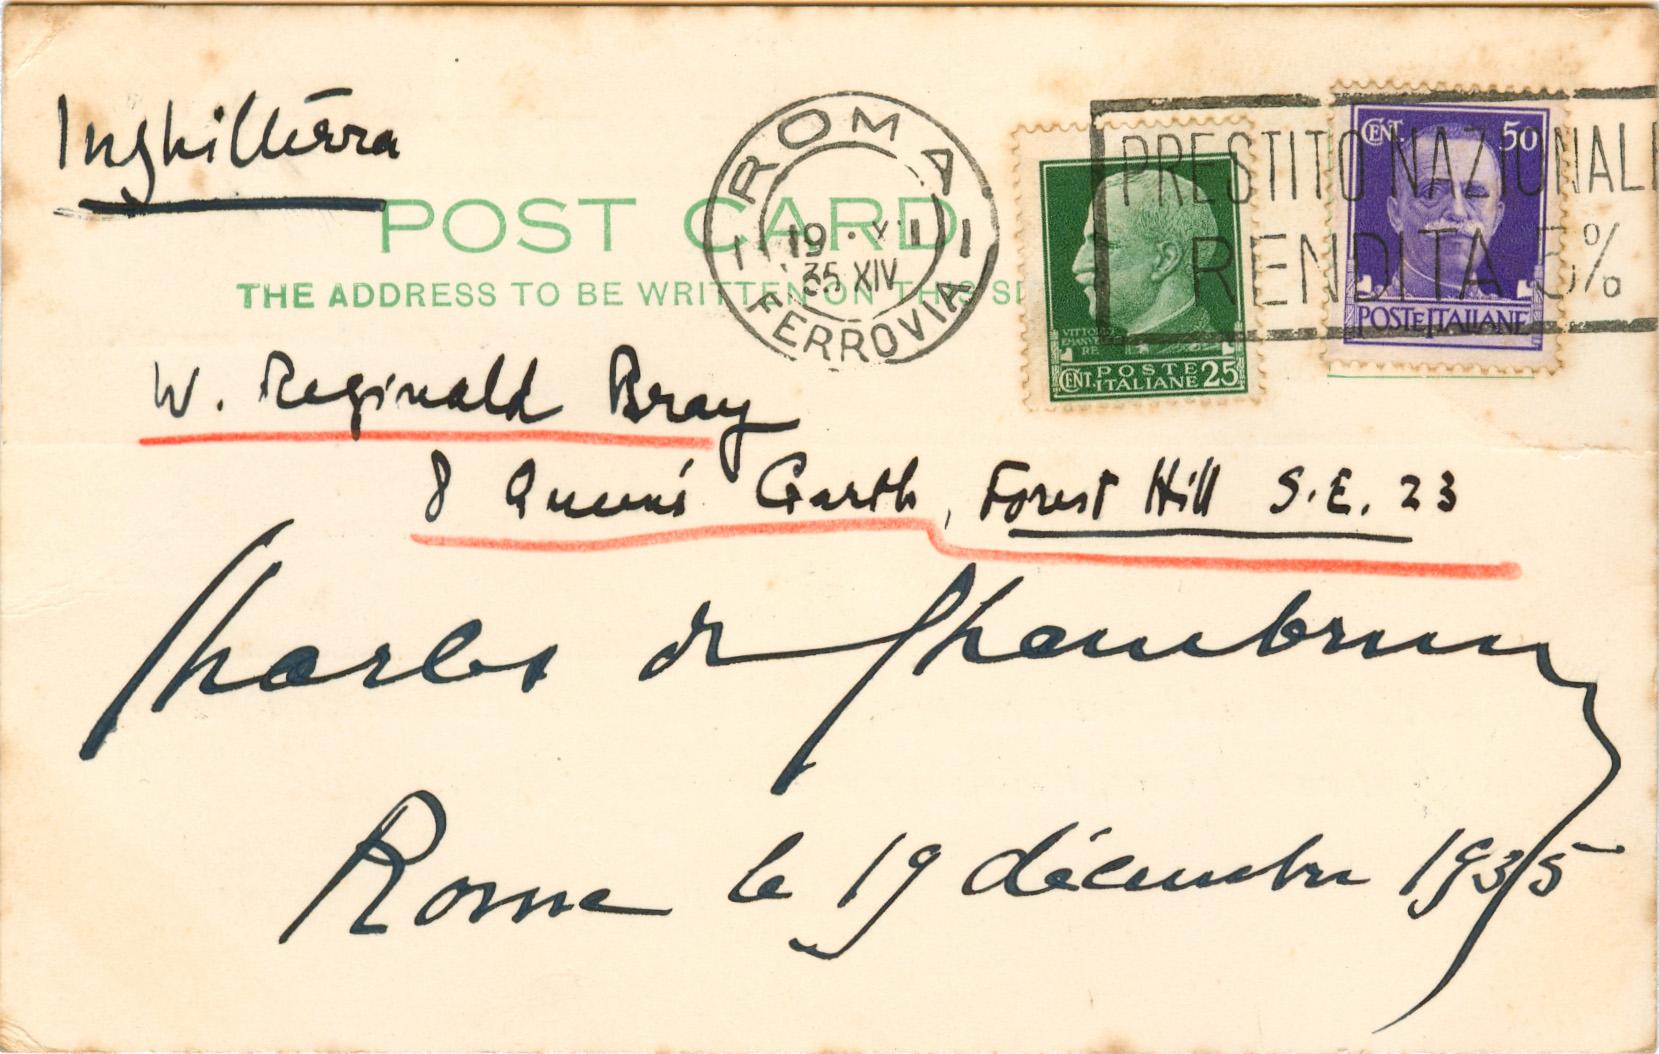 Inghilterra
POST CARD
THE ADDRESS TO BE WRITTEN ON THIS SI
ROMA
19 · XII
35 XIV
FERROVIA
PRESTITO NAZIONALE
RENDITA 5%
VITTORIO
EMANVELE
RE
CENT. POSTE ITALIANE 25
CENT. 50
POSTE ITALIANE
W. Reginald Bray
8 Queen's Garth, Forest Hill S.E. 23
Charles de Chambrun
Rome le 19 décembre 1935